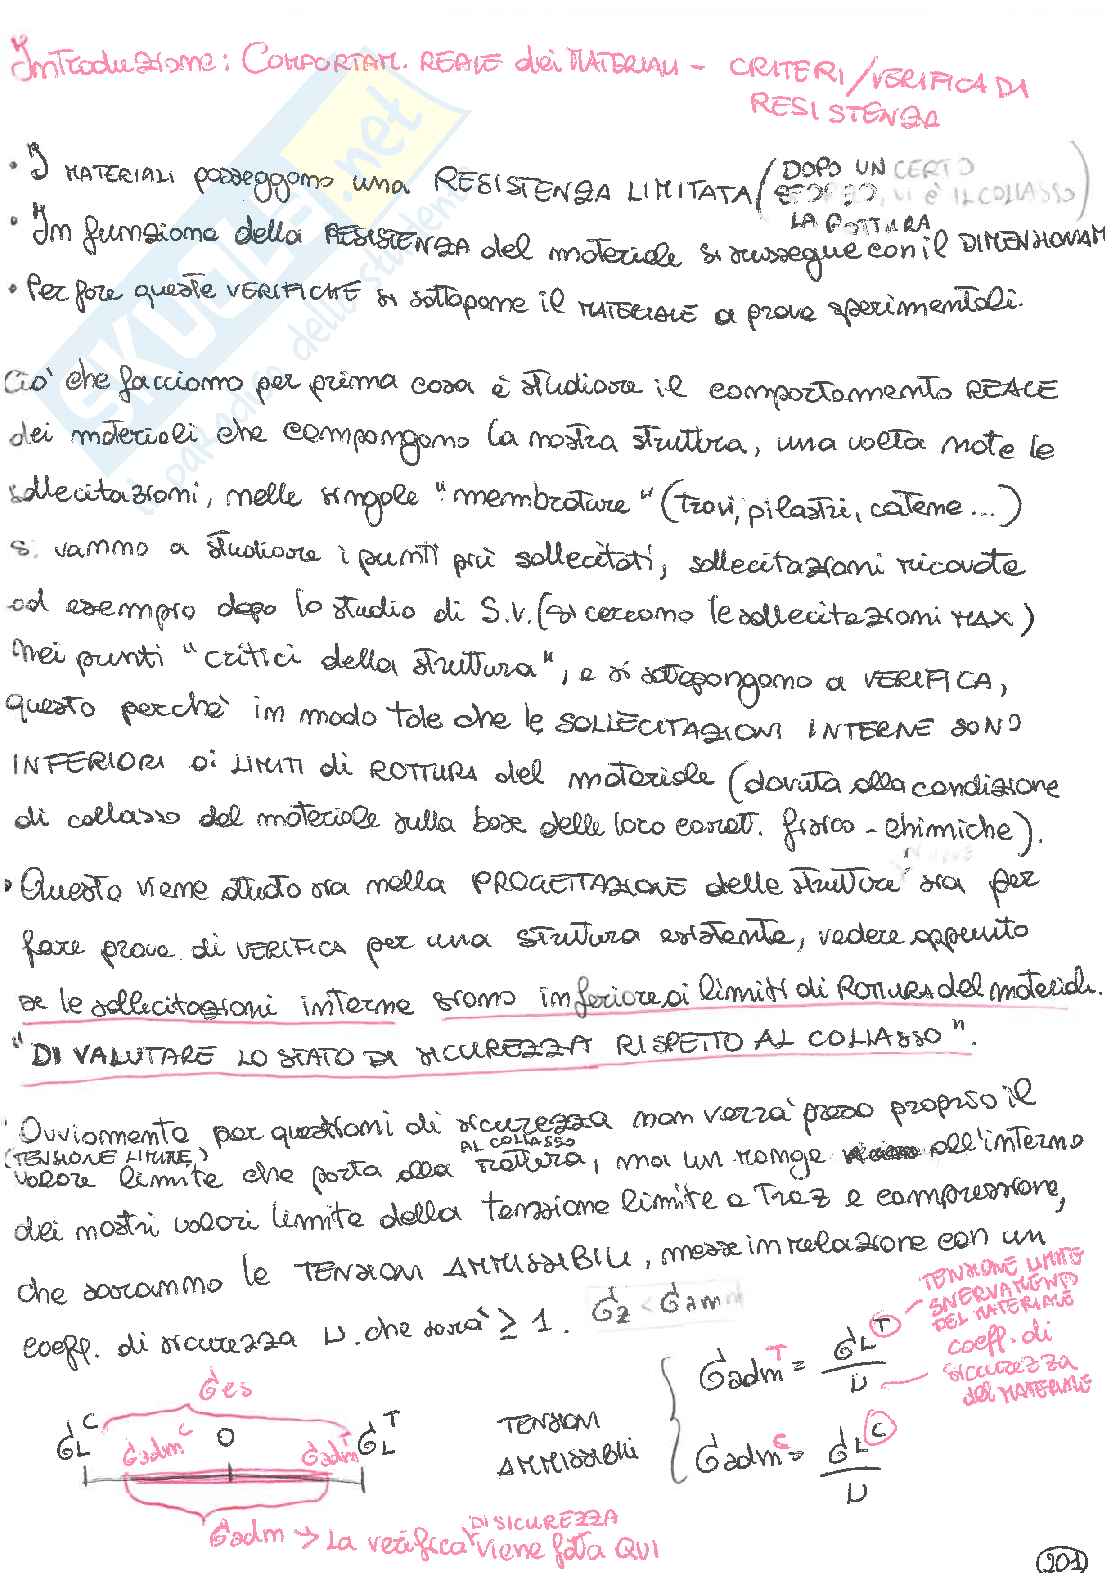 Introduzione: COMPORTAM. REALE dei MATERIALI - CRITERI/VERIFICA DI
RESISTENZA
• I MATERIALI posseggono una RESISTENZA LIMITATA (DOPO UN CERTO
SFORZO, VI è IL COLLASSO)
LA ROTTURA
• In funzione della RESISTENZA del materiale si susegue con il DIMENSIONAM
• Per fare queste VERIFICHE si sottopone il MATERIALE a prove sperimentali.
Ciò che facciamo per prima cosa è studiare il comportamento REALE
dei materiali che compongono la nostra struttura, una volta note le
sollecitazioni, nelle singole "membrature" (travi, pilastri, catene...)
si vanno a studiare i punti più sollecitati, sollecitazioni ricavate
ad esempio dopo lo studio di S.V. (si cercano le sollecitazioni MAX)
nei punti "critici della struttura", e si sottopongono a VERIFICA,
questo perchè in modo tale che le SOLLECITAZIONI INTERNE SONO
INFERIORI ai LIMITI di ROTTURA del materiale (dovuta alla condizione
di collasso del materiale sulla base delle loro caratt. fisico-chimiche).
• Questo viene studiato sia nella PROGETTAZIONE delle strutture sia per
fare prove di VERIFICA per una struttura esistente, vedere appunto
se le sollecitazioni interne siano inferiore ai limiti di ROTTURA del materiale.
"DI VALUTARE LO STATO DI SICUREZZA RISPETTO AL COLLASSO".
Ovviamente per questioni di sicurezza non verrà preso proprio il
(TENSIONE LIMITE) AL COLLASSO
valore limite che porta alla rottura, ma un range all'interno
dei nostri valori limite della tensione limite a Traz e compressione,
che saranno le TENSIONI AMMISSIBILI, messe in relazione con un
coeff. di sicurezza ν che sarà ≥ 1. σz < σam
TENSIONE LIMITE
SNERVAMENTO
DEL MATERIALE
σadm^T = σL^T / ν
coeff. di
sicurezza
del MATERIALE
σes
σL^C σadm^C O σadm^T σL^T
TENSIONI
AMMISSIBILI
σadm^C = σL^C / ν
DI SICUREZZA
σadm → La verifica viene fatta QUI
201
SKUOLA.net
il paradiso dello studente